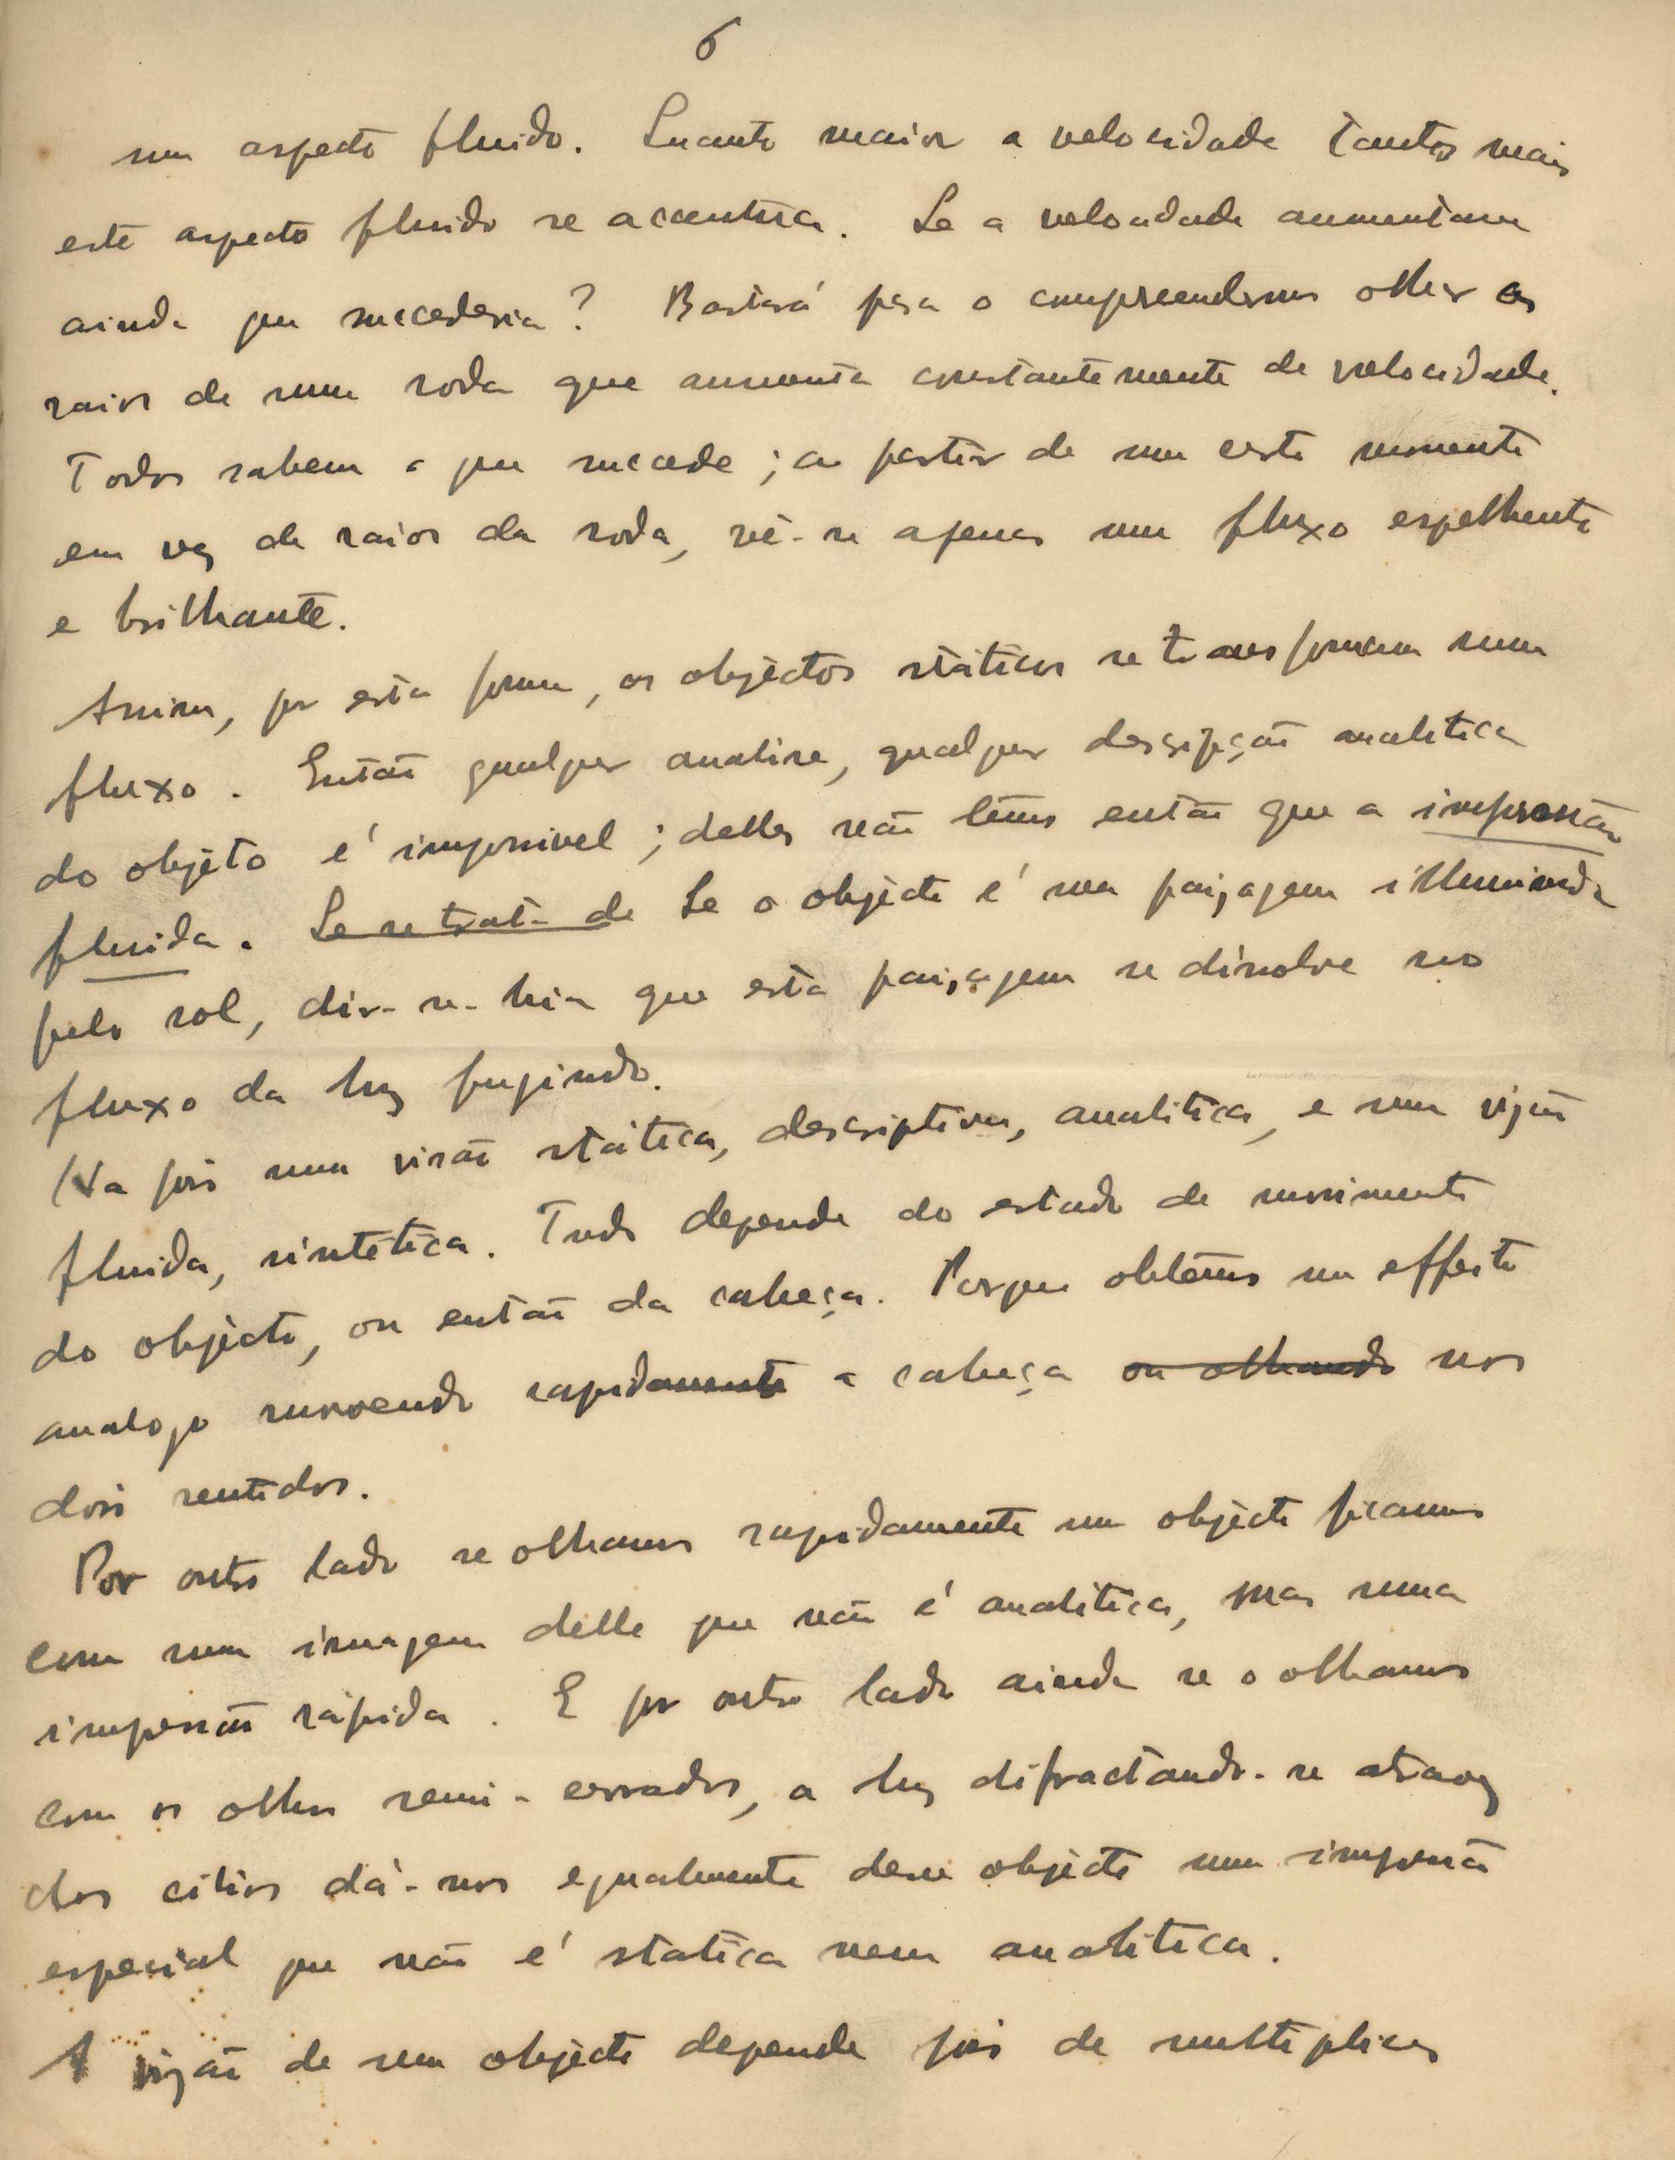 6
um aspecto fluido. Quanto maior a velocidade tanto mais
este aspecto fluido se accentua. Se a velocidade aumentasse
ainda que succederia? Bastará para o compreendermos olhar os
raios de uma roda que aumenta constantemente de velocidade.
Todos sabem o que succede; a partir de um certo momento
em vez de raios da roda, vê-se apenas um fluxo espelhente
e brilhante.
Assim, por esta forma, os objèctos státicos se transformam num
fluxo. Então qualquer analise, qualquer descripção analitica
do objèto é impossivel; delles não têmos então que a impressão
fluida. Se se trata de Se o objècto é uma paizagem illuminada
pelo sol, dir-se-hia que esta paizagem se dissolve no
fluxo da luz fugindo.
Ha pois uma visão státtica, descriptiva, analitica, e uma vizão
fluida, sintética. Tudo depende do estado de movimento
do objècto, ou então da cabeça. Porque obtêmos um effeito
analogo movendo rapidamente a cabeça ou olhando nos
dois sentidos.
Por outro lado se olhamos rapidamente um objècto ficamos
com uma imagem delle que não é analitica, mas uma
impressão rápida. E por outro lado ainda se o olhamos
com os olhos semi-cerrados, a luz difractando-se atravez
dos cilios dá-nos egualmente desse objècto uma impressão
especial que não é statica nem analitica.
A vizão de um objècto depende pois de multiplices